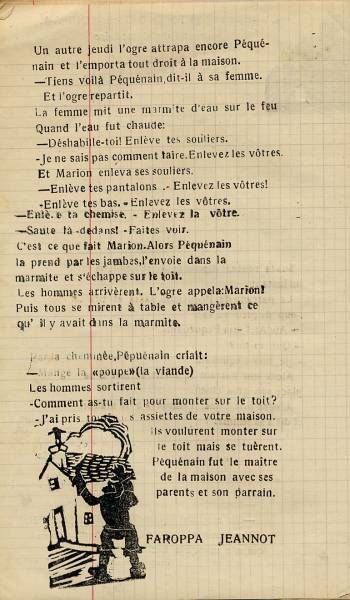 Un autre jeudi l'ogre attrapa encore Péqué-
nain et l'emporta tout droit à la maison.
—Tiens voilà Péquénain,dit-il à sa femme.
Et l'ogre repartit.
La femme mit une marmite d'eau sur le feu
Quand l'eau fut chaude:
—Déshabille-toi! Enlève tes souliers.
-Je ne sais pas comment faire.Enlevez les vôtres.
Et Marion enleva ses souliers.
—Enlève tes pantalons .- Enlevez les vôtres!
-Enlève tes bas.- Enlevez les vôtres.
ta chemise. - Enlevez la vôtre.
—Saute là-dedans! -Faites voir.
C'est ce que fait Marion.Alors Péquénain
la prend par les jambes,l'envoie dans la
marmite et s'échappe sur le toit.
Les hommes arrivèrent. L'ogre appela:Marion!
Puis tous se mirent à table et mangèrent ce
qu' il y avait dans la marmite.
Par la cheminée,Péquénain criait:
—Mange la «poupe»(la viande)
Les hommes sortirent
-Comment as-tu fait pour monter sur le toit?
-J'ai pris assiettes de votre maison.
Ils voulurent monter sur
le toit mais se tuèrent.
Péquénain fut le maitre
de la maison avec ses
parents et son parrain.
FAROPPA JEANNOT